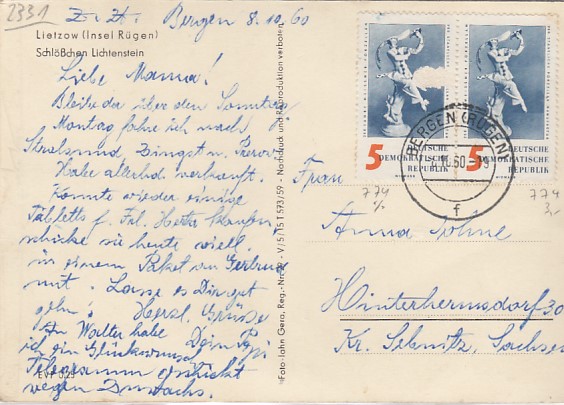 2331
Z. Zt. Bergen 8.10.60
Lietzow (Insel Rügen)
Schlößchen Lichtenstein
Liebe Mama!
Bleibe da über den Sonntag,
Montag fahre ich nach
Stralsund, Zingst u. Prerow
Habe allerhand verkauft.
Konnte wieder einige
Tabletts f. Frl. Herta kaufen
schicke sie heute
in einem Paket an Gertrud
mit. Lasse es Dir gut
gehn! Herzl. Grüße
Dein
An Walter habe
ich ein Glückwunsch
Telegramm geschickt
wegen Zuwachs.
EVP 0,25
Foto-John Gera, Reg.-Nr. V/5/15 I 573/59 - Nachdruck und Reproduktion verboten
5 DEUTSCHE
DEMOKRATISCHE
REPUBLIK
5 DEUTSCHE
DEMOKRATISCHE
REPUBLIK
BERGEN (RÜGEN)
10.60
f
774
774
3,-
Frau
Anna
Hinterhermsdorf 30
Kr. Sebnitz, Sachsen